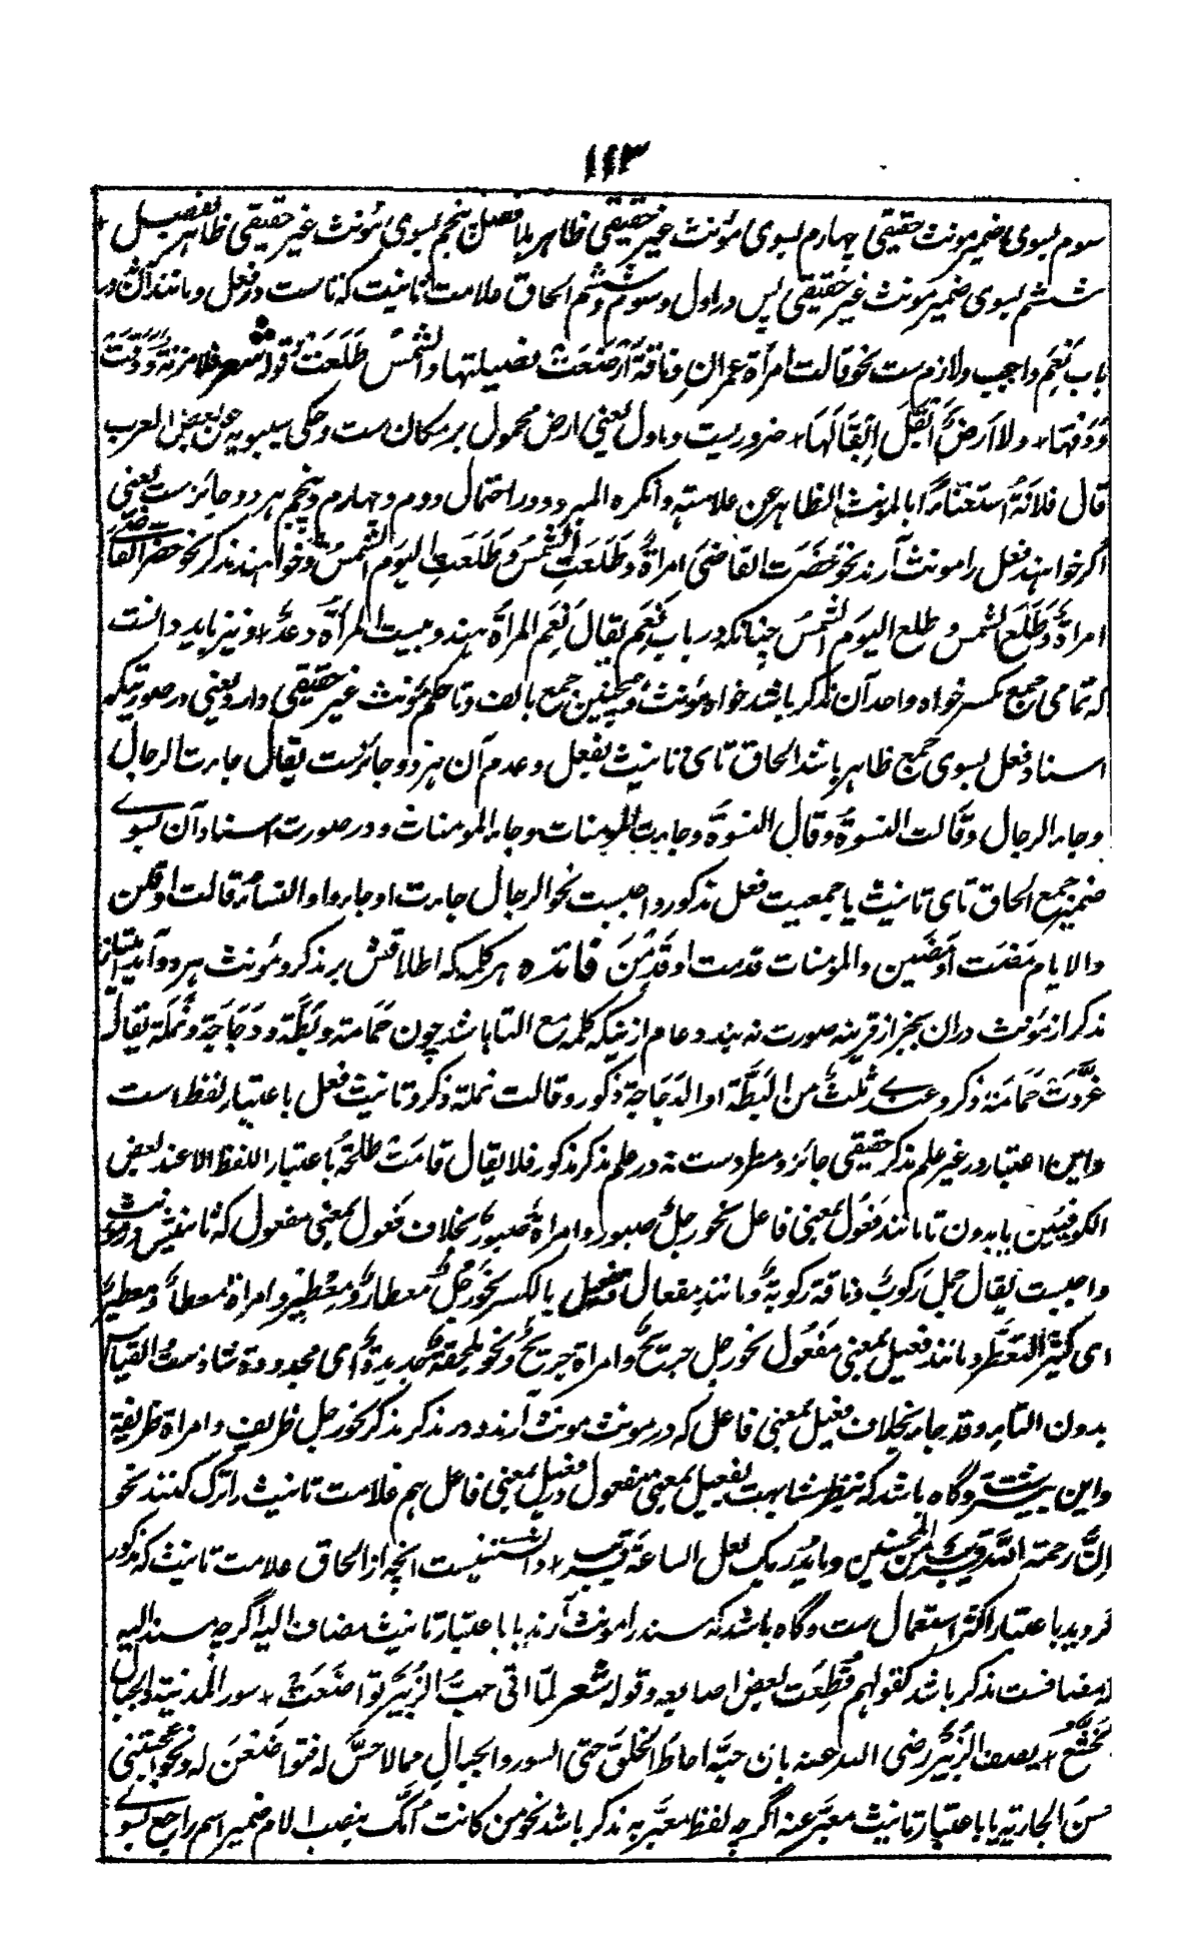 ١١٣
سوم بسوی ضمیر مونث حقیقی چهارم بسوی مؤنث غیر حقیقی ظاهر بلا فصل پنجم بسوی مؤنث غیر حقیقی ظاهر بفصل
ششم بسوی ضمیر مونث غیر حقیقی پس در اول و سوم و ششم الحاق علامت تانیث که تاست در فعل و مانند آن در
باب نِعْمَ واجب و لازم ست نحو قالت امرأة عمران و ناقةٌ أرضعَتْ فصیلتها و الشمسُ طَلَعَتْ و قوله شعر فلا مزنةٌ وَدَقَتْ
وَدْقَهَا + ولا اَرضٌ اَبْقَلَ اِبْقَالَهَا + ضروریست و ماول یعنی ارض محمول بر مکان ست و حکی سیبویه عن بعض العرب
قال فلانَةُ استغناءً بالمونث الظاهر عن علامته و انکره المبرد و در احتمال دوم و چهارم و پنجم هر دو جائز ست یعنی
اگر خواهند فعل را مونث آرند نحو حَضَرَت القاضیَ امرأةٌ و طَلَعَتِ الشمسُ و طَلَعَتِ الیومَ الشمسُ و خواهند مذکر نحو حضر القاضیَ
امرأةٌ و طَلَعَ الشمس و طلع الیومَ الشمسُ چنانکه در باب نِعْمَ یقال نِعْمَ المرأة هند و بیست المرأة دعدٌ + و نیز باید دانست
که تمامی جمع مکسر خواه واحد آن مذکر باشد خواه مؤنث و همچنین جمع بالف و تا حکم مؤنث غیر حقیقی دارد یعنی در صورتیکه
اسناد فعل بسوی جمع ظاهر باشد الحاق تای تانیث بفعل و عدم آن هر دو جائزست یقال جاءت الرجال
و جاء الرجال و قالت النسوة و قال النسوة و جاءت المومنات و جاء المومنات و در صورت اسناد آن بسوے
ضمیر جمع الحاق تای تانیث یا جمعیت فعل مذکور واجبست نحو الرجال جاءت او جاءوا و النساءُ قالت او قلن
والایام مَضَت أو مَضَین والمومنات قدمت او قَدِمْنَ فائده هر کلمه که اطلاقش بر مذکر و مؤنث هر دو آید امتیاز
مذکر از مؤنث دران بجز از قرینه صورت نه بندد عام ازینکه کلمه مع التا باشد چون حَمامة و بَطَّة و دَجَاجَة و نَمْلَة یقال
غَرَّدَتْ حَمَامَة ذکر و عندے ثلثٌ من البَطَّة او الدَجَاجة ذکور و قالت نملة ذکر و تانیث فعل باعتبار لفظ است
و این اعتبار در غیر علم مذکر حقیقی جائز و مطردست نه در علم مذکر مذکور فلا یقال قامَتْ طلحةُ باعتبار اللفظ الا عند بعض
الکوفیین یا بدون تا مانند فَعُول بمعنی فاعل نحو رجلٌ صبور و امرأةٌ صبورٌ بخلاف فَعُول بمعنی مفعول که تانیثش در مؤنث
واجبست یقال جمل رَکوبٌ و ناقة رکوبةٌ و مانند مِفعال و مِفعیل بالکسر نحو رَجُلٌ مِعطارٌ و مِعْطِیْر و امرأة مِعطارٌ و مِعطیرٌ
ای کثیر التعطُّر و مانند فعیل بمعنی مَفعُول نحو رجل جریحٌ و امرأة جریحٌ و نحو ملحفة جدیدةٌ ای مجدودة شاذست و القیاس
بدون التاء و قد جاء بخلاف فعیل بمعنی فاعل که در مونث مونث آرند و در مذکر مذکر نحو رجل ظریف و امرأة ظریفة
و این بیشترست و گاه باشد که بنظر مشابهت بفعیل بمعنی مفعول در فعیل بمعنی فاعل هم علامت تانیث را ترک کنند نحو
اِنَّ رحمة الله قریبٌ من المحسنین و ما یُدْرِیک لعل الساعةَ قریب + دانستنیست آنچه از الحاق علامت تانیث که مذکور
گردید باعتبار اکثر استعمال ست و گاه باشد که مسند را مونث آرند باعتبار تانیث مضاف الیه اگرچه مسند الیه
که مضافست مذکر باشد کقولهم قُطِعَت بعض اصابعه و قوله شعر لمّا اتی خبرُ الزُبَیر تواضعَتْ + سور المدینة والجبال
الخُشَّعُ + یصف الزُبَیر رضی الله عنه بان حبَّه احاط الخلق حتی السور و الجبال مما لا حسَّ له فتواضَعْنَ له و نحو اعجبتنی
حسن الجاریة یا باعتبار تانیث معبَّر عنه اگرچه لفظ معبَّر به مذکر باشد نحو من کانت اُمَّک بنصب الام ضمیر اسم راجع بسوے